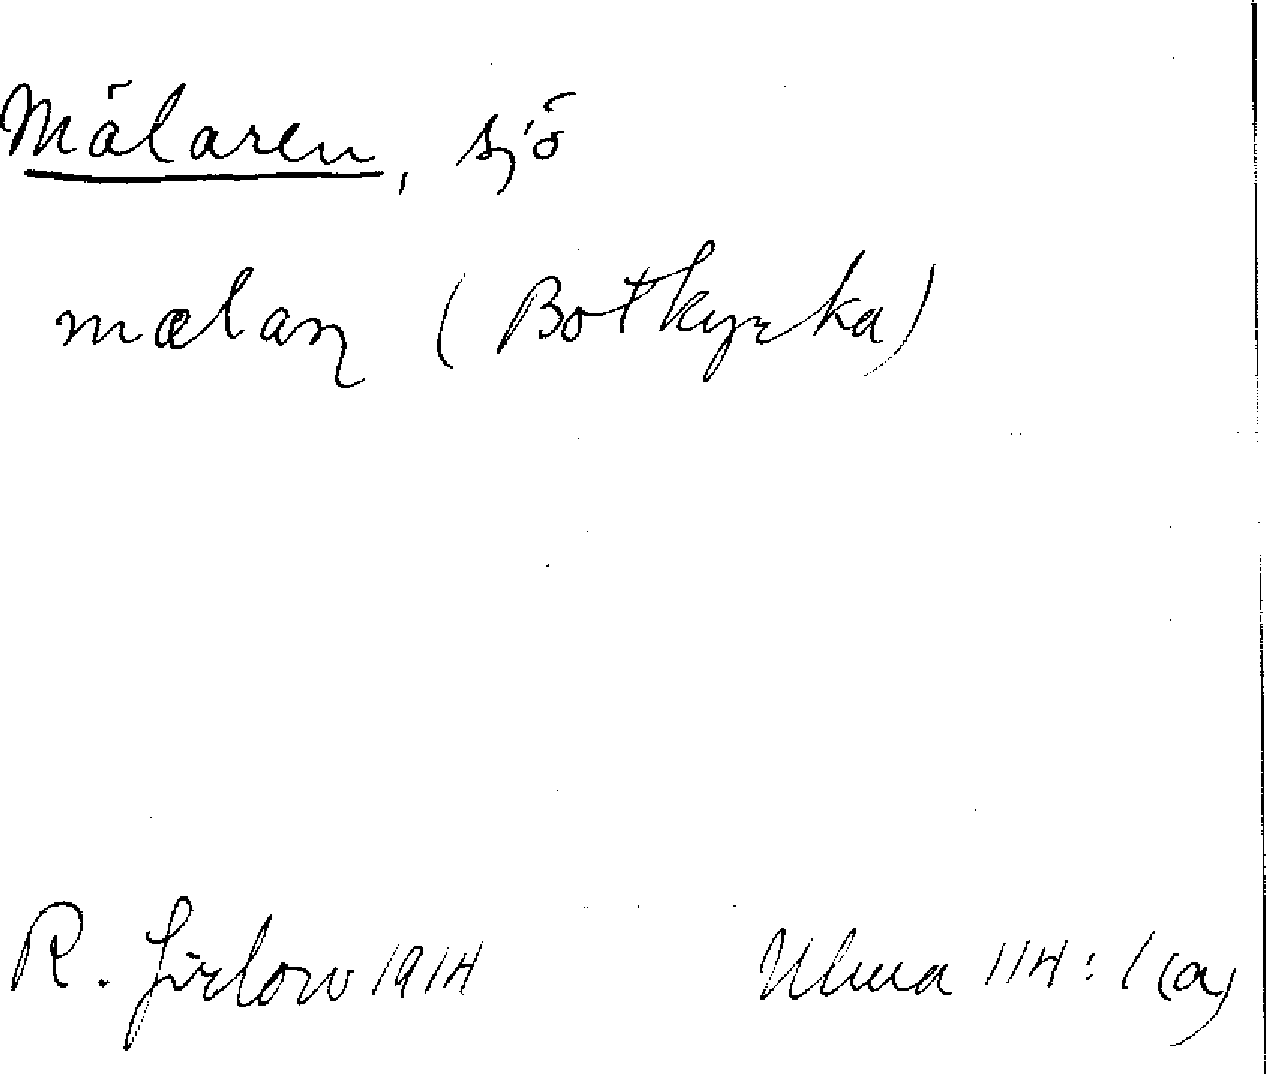 Mälaren, sjö
mælaɳ (Botkyrka)
R. Jirlow 1914
Ulma 114:1(a)